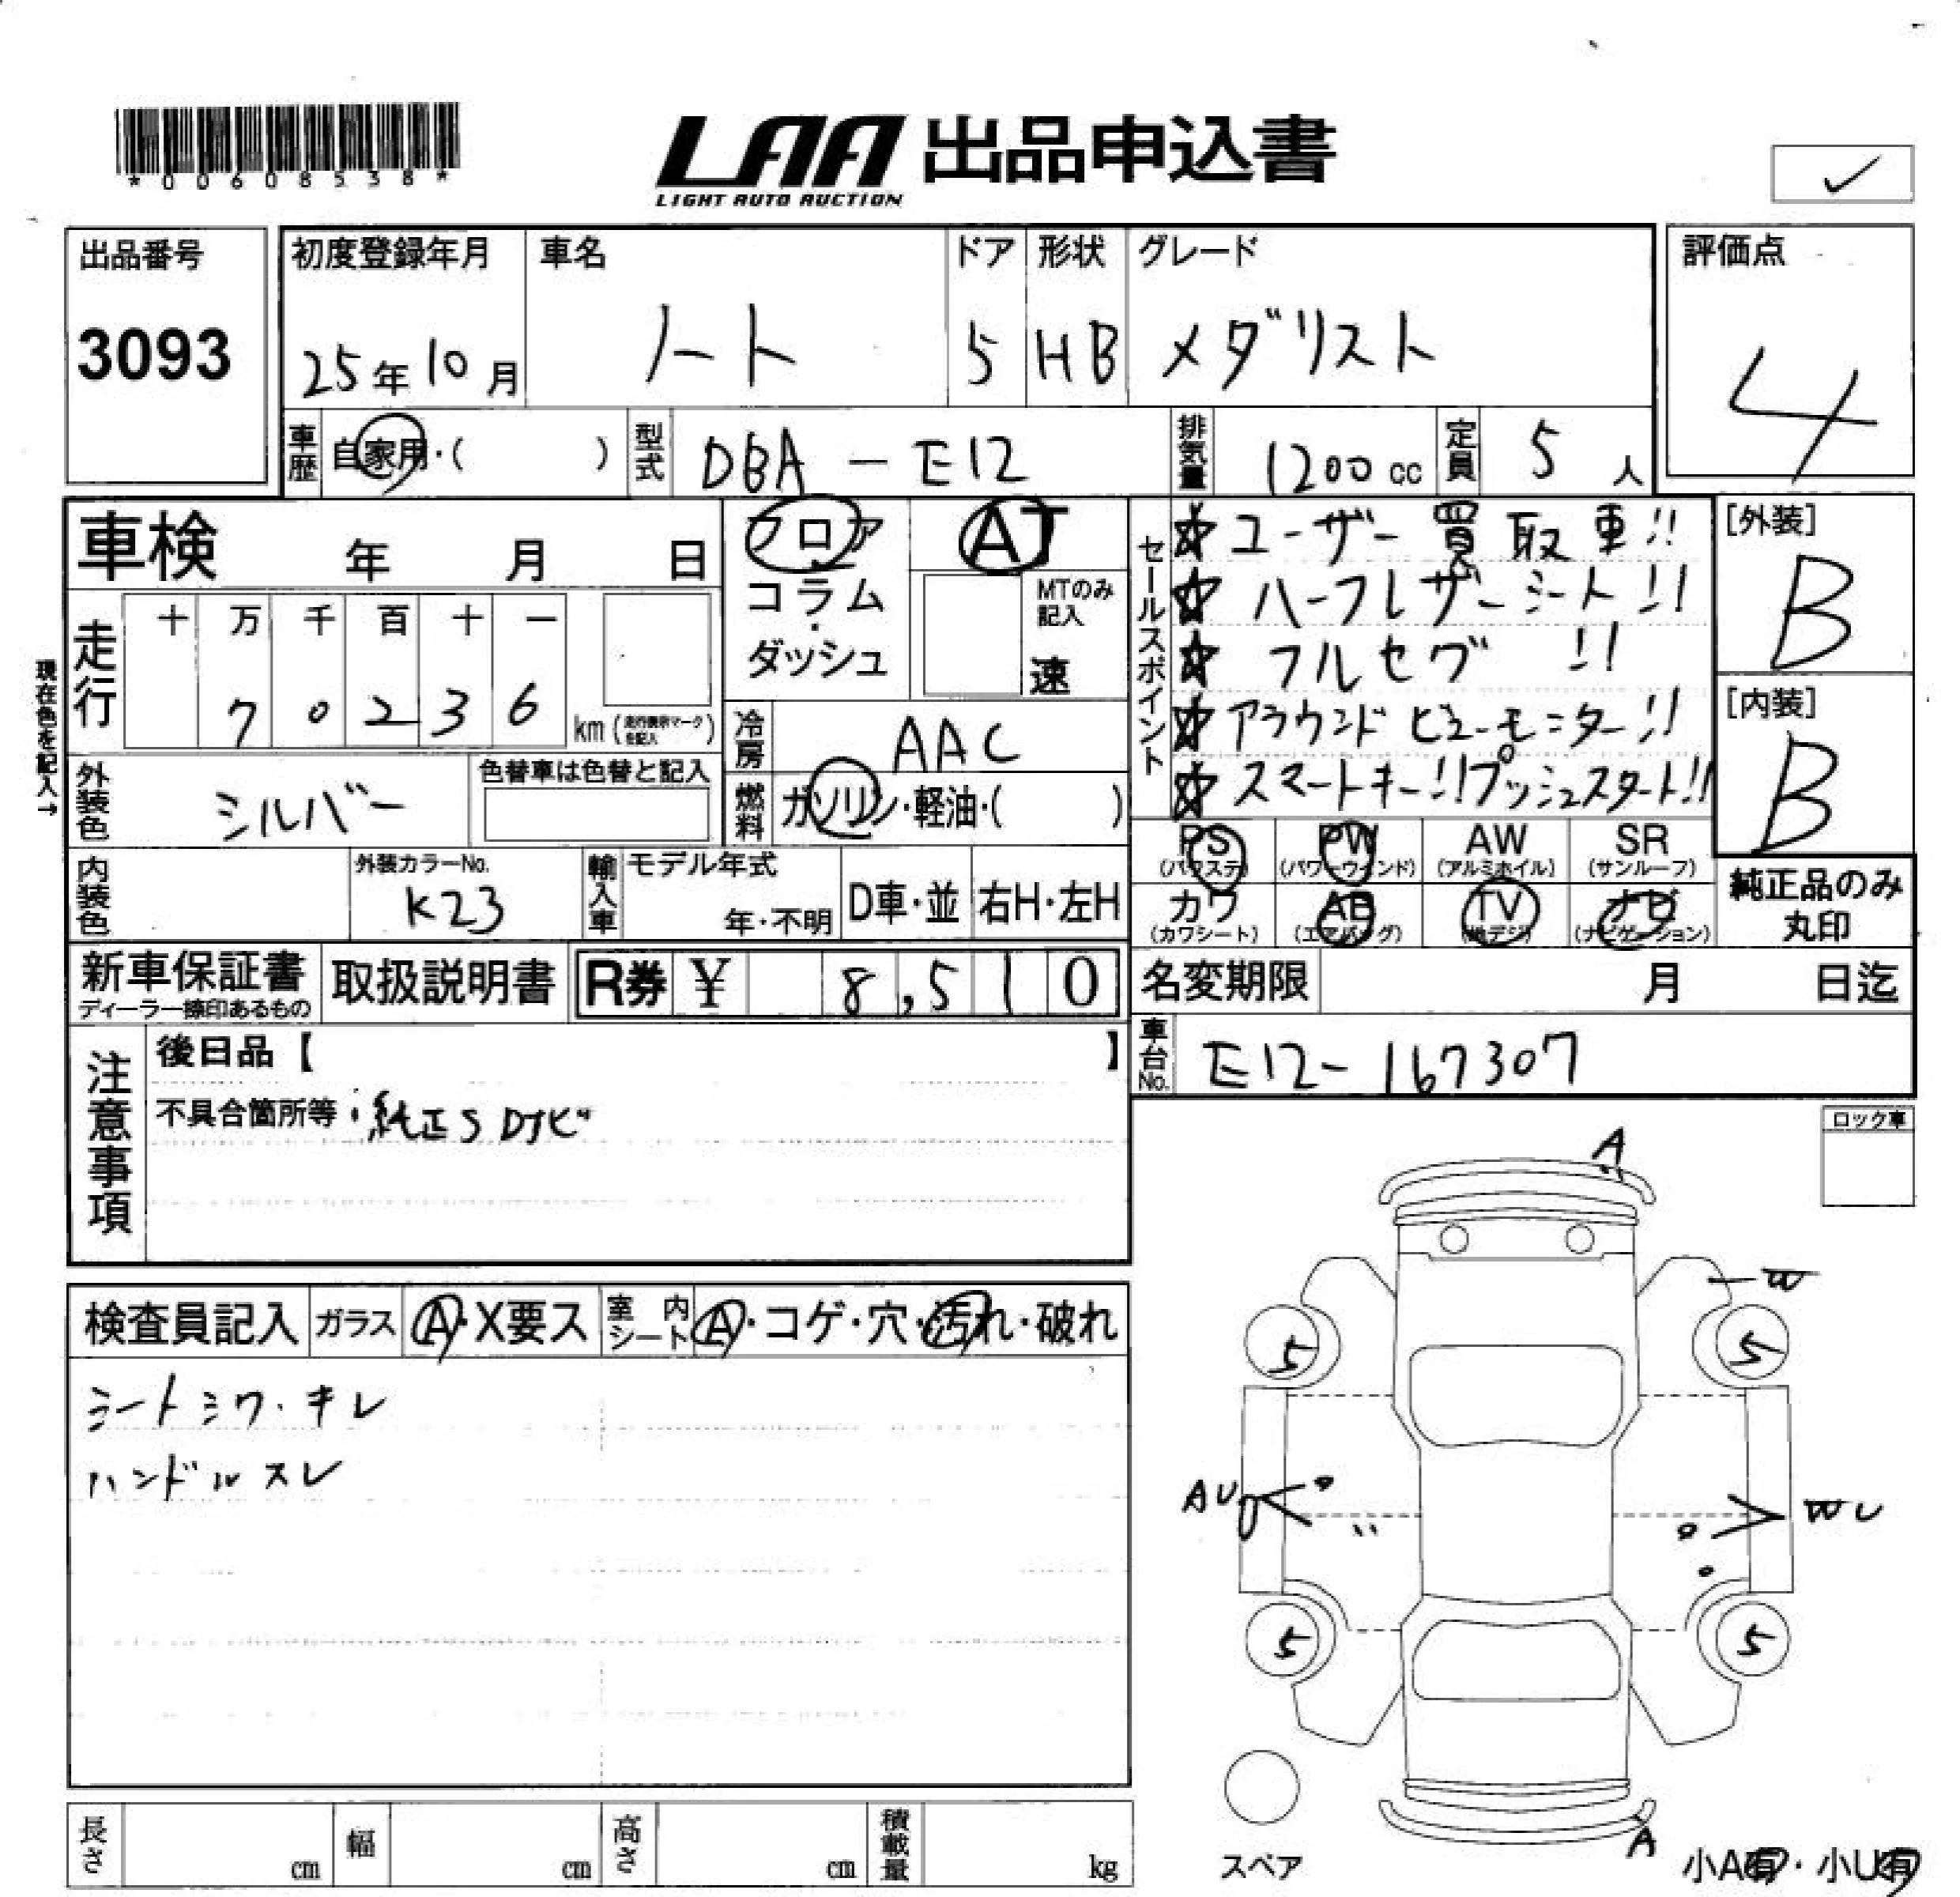 *00608538*
LAA 出品申込書
LIGHT AUTO AUCTION
✓
出品番号
3093
初度登録年月
25年10月
車名
ノート
ドア
5
形状
HB
グレード
メダリスト
評価点
4
車歴
自家用・( )
型式
DBA-E12
排気量
1200cc
定員
5人
車検 年 月 日
フロア
コラム・
ダッシュ
AT
MTのみ記入
速
セールスポイント
☆ユーザー買取車!!
☆ハーフレザーシート!!
☆フルセグ !!
☆アラウンドビューモニター!!
☆スマートキー!!プッシュスタート!!
[外装]
B
[内装]
B
現在色を記入→
走行
十 万 千 百 十 一
7 0 2 3 6
km (走行表示マークを記入)
冷房
AAC
燃料
ガソリン・軽油・( )
外装色
シルバー
色替車は色替と記入
内装色
外装カラーNo.
K23
輸入車
モデル年式
年・不明
D車・並
右H・左H
PS
(パワステ)
PW
(パワーウィンド)
AW
(アルミホイル)
SR
(サンルーフ)
カワ
(カワシート)
AB
(エアバッグ)
TV
(地デジ)
ナビ
(ナビゲーション)
純正品のみ
丸印
新車保証書
ディーラー捺印あるもの
取扱説明書
R券 ¥ 8,510
名変期限 月 日迄
車台No.
E12-167307
注意事項
後日品【 】
不具合箇所等・純正SDナビ
ロック車
検査員記入
ガラス
A・X要ス
室内シート
A・コゲ・穴・汚れ・破れ
シートシワ・キレ
ハンドルスレ
A
W
5
5
AU
WU
5
5
スペア
A
小A有・小U有
長さ cm
幅 cm
高さ cm
積載量 kg